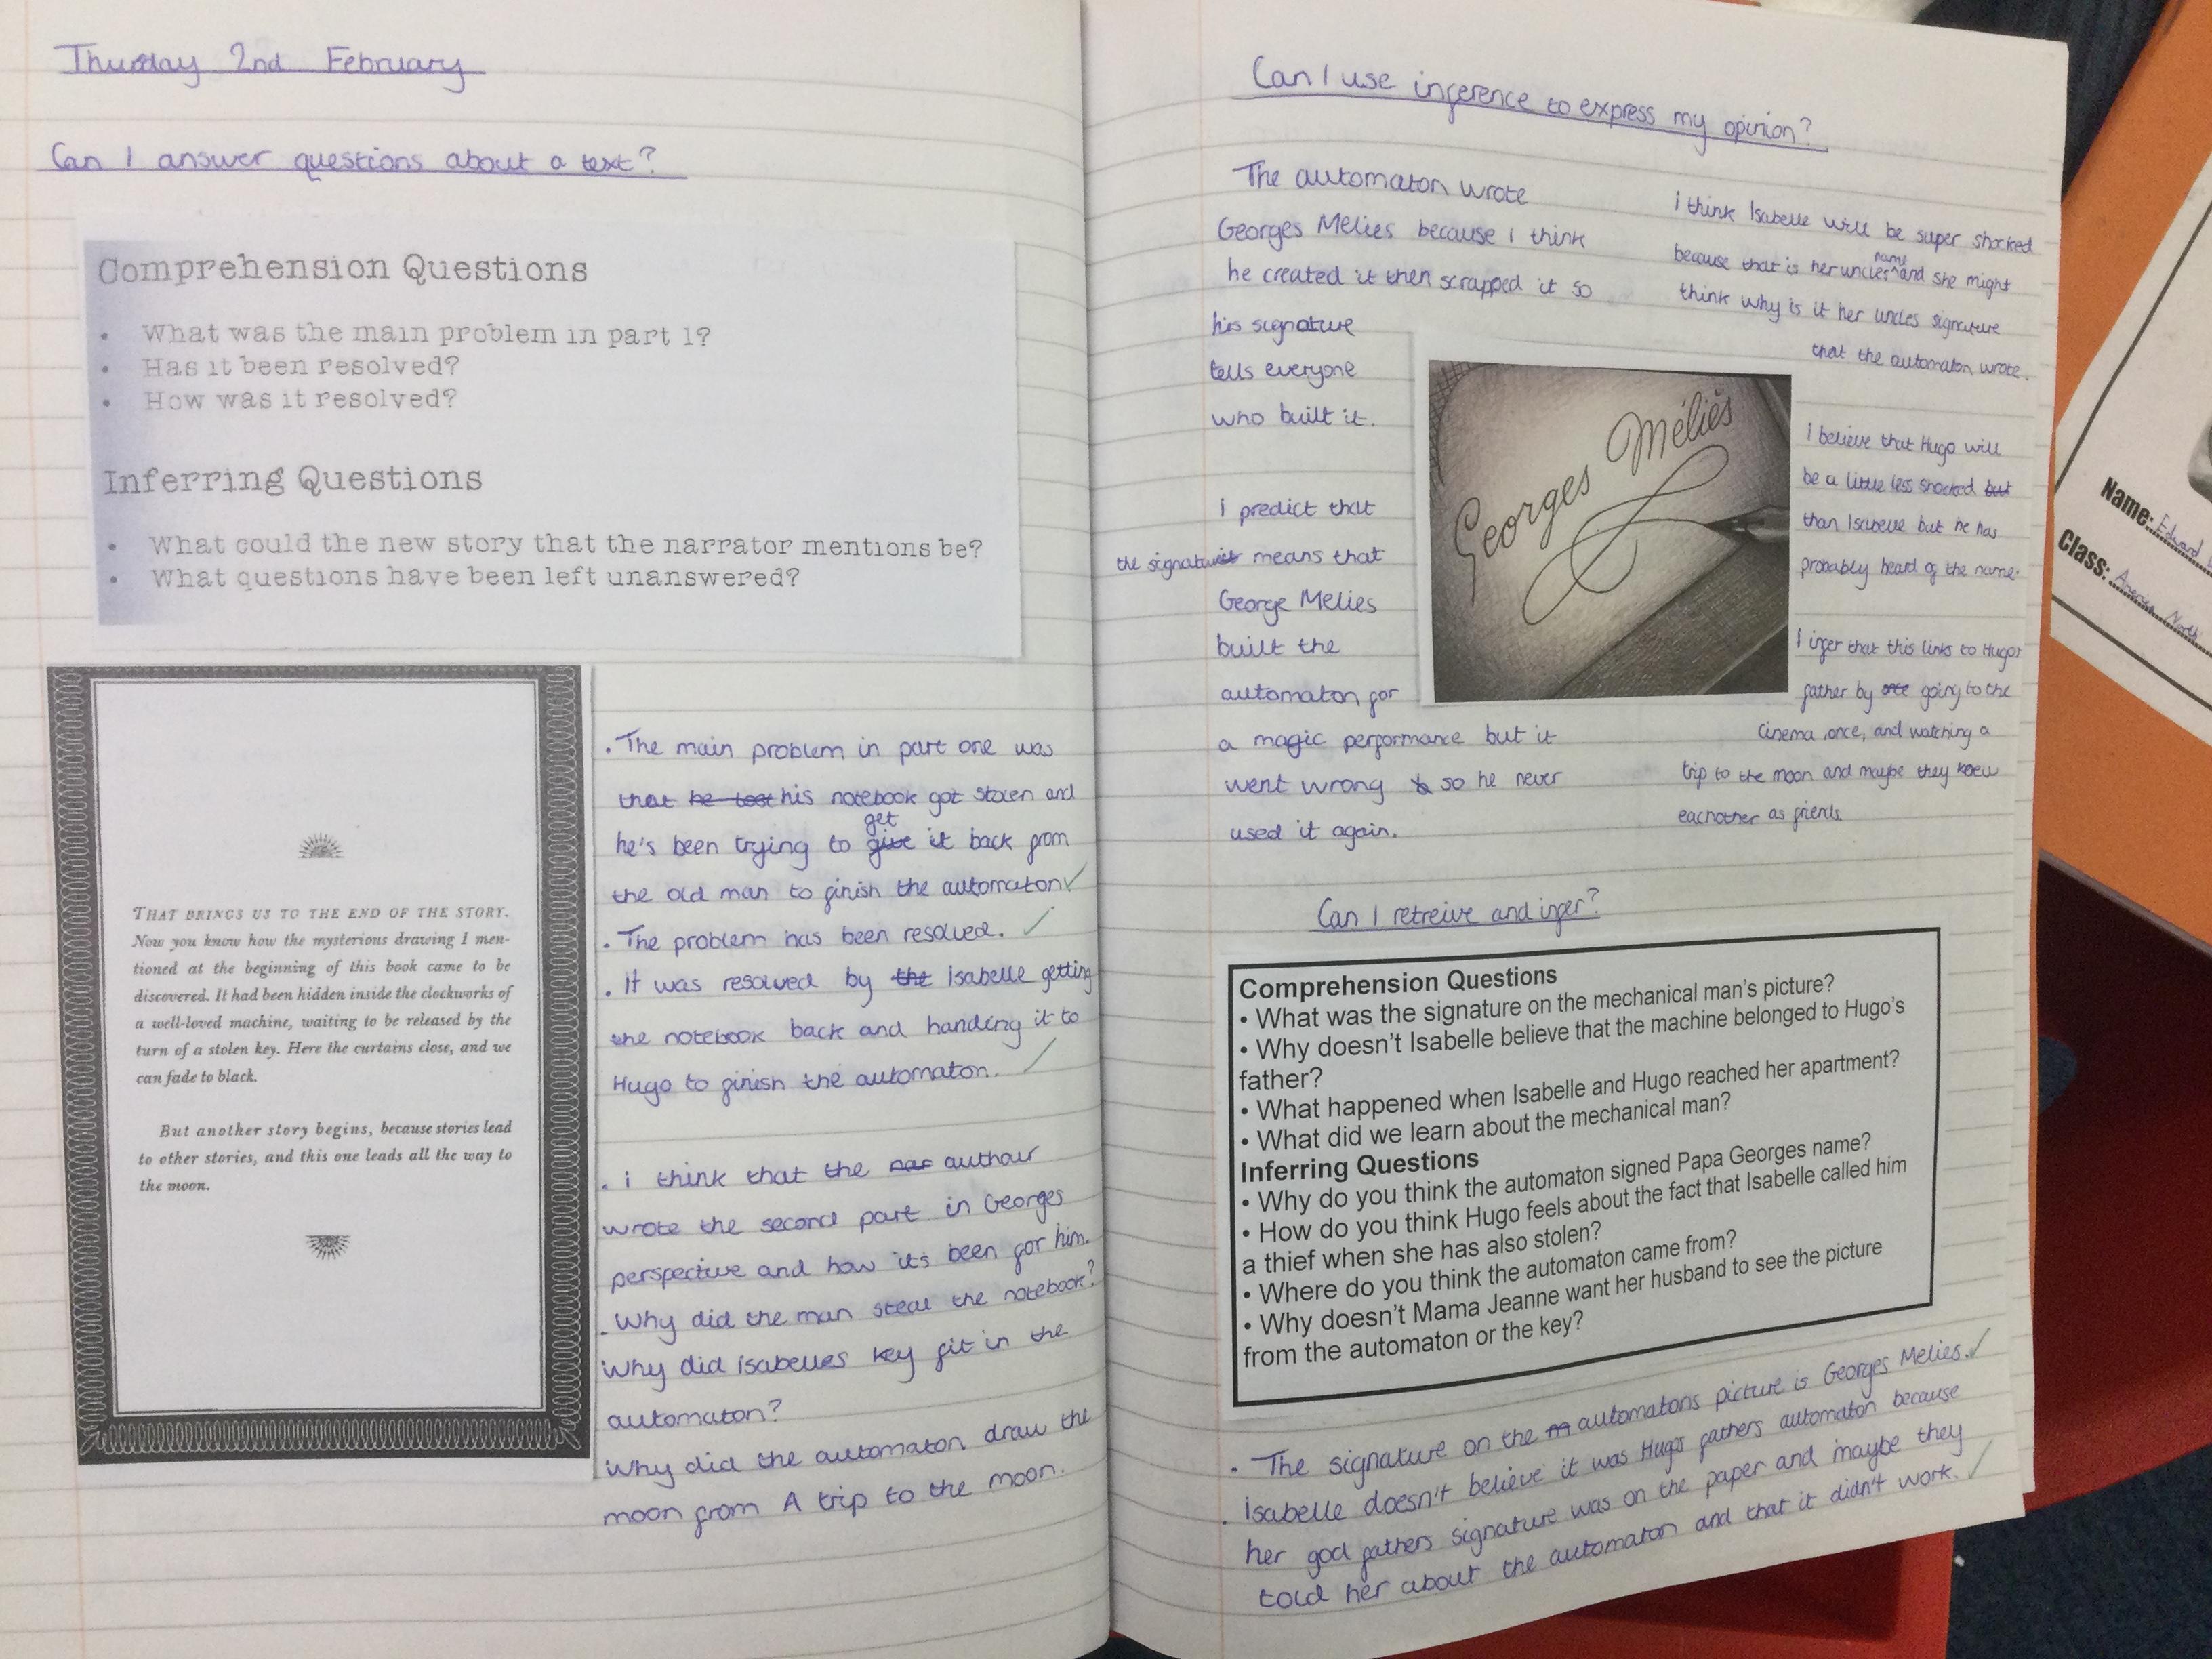 Thursday 2nd February
Can I answer questions about a text?
Comprehension Questions
• What was the main problem in part 1?
• Has it been resolved?
• How was it resolved?
Inferring Questions
• What could the new story that the narrator mentions be?
• What questions have been left unanswered?
THAT BRINGS US TO THE END OF THE STORY.
Now you know how the mysterious drawing I men-
tioned at the beginning of this book came to be
discovered. It had been hidden inside the clockworks of
a well-loved machine, waiting to be released by the
turn of a stolen key. Here the curtains close, and we
can fade to black.
But another story begins, because stories lead
to other stories, and this one leads all the way to
the moon.
. The main problem in part one was
that he lost his notebook got stolen and
get
he's been trying to give it back from
the old man to finish the automaton ✓
. The problem has been resolved. ✓
. It was resolved by the Isabelle getting
the notebook back and handing it to
Hugo to finish the automaton. ✓
. i think that the nar authour
wrote the second part in Georges
perspective and how it's been for him.
. Why did the man steal the notebook?
Why did isabelles key fit in the
automaton?
Why did the automaton draw the
moon from A trip to the moon.
Can I use inference to express my opinion?
The automaton wrote
Georges Melies because I think
he created it then scrapped it so
his signature
tells everyone
who built it.
I predict that
the signature means that
George Melies
built the
automaton for
a magic performance but it
went wrong so he never
used it again.
i think Isabelle will be super shocked
name
because that is her uncles ^ and she might
think why is it her uncles signature
that the automaton wrote.
Georges Méliès
I believe that Hugo will
be a little less shocked but
than Isabelle but he has
probably heard of the name.
I infer that this links to Hugos
father by going to the
cinema once, and watching a
trip to the moon and maybe they knew
eachother as friends.
Can I retreive and infer?
Comprehension Questions
• What was the signature on the mechanical man's picture?
• Why doesn't Isabelle believe that the machine belonged to Hugo's
father?
• What happened when Isabelle and Hugo reached her apartment?
• What did we learn about the mechanical man?
Inferring Questions
• Why do you think the automaton signed Papa Georges name?
• How do you think Hugo feels about the fact that Isabelle called him
a thief when she has also stolen?
• Where do you think the automaton came from?
• Why doesn't Mama Jeanne want her husband to see the picture
from the automaton or the key?
. The signature on the m automatons picture is Georges Melies. ✓
. Isabelle doesn't believe it was Hugos fathers automaton because
her god fathers signature was on the paper and maybe they
told her about the automaton and that it didn't work. ✓
Name: Edward
Class: America North